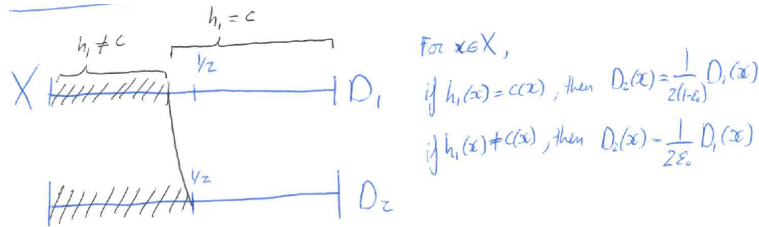 h₁ = c
h₁ ≠ c
1/2
X
D₁
1/2
D₂
For x∈X,
if h₁(x) = c(x), then D₂(x) = 1/2(1-ε₀) D₁(x)
if h₁(x) ≠ c(x), then D₂(x) - 1/2ε₀ D₁(x)